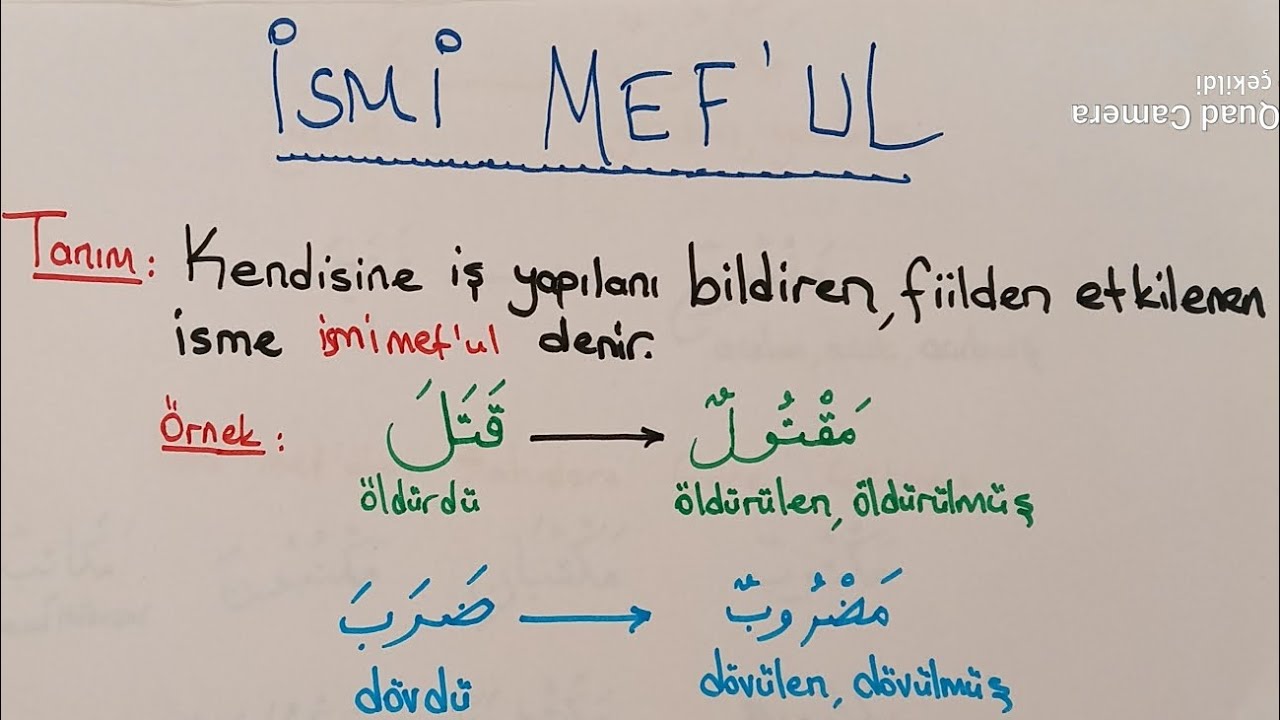 İSMİ MEF'UL
Quad Camera
çekildi
Tanım: Kendisine iş yapılanı bildiren, fiilden etkilenen
isme ismi mef'ul denir.
Örnek: قَتَلَ → مَقْتُولٌ
öldürdü öldürülen, öldürülmüş
ضَرَبَ → مَضْرُوبٌ
dövdü dövülen, dövülmüş